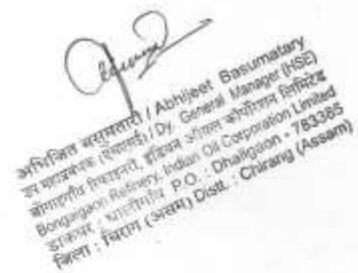 अभिजित बसुमतारी / Abhijeet Basumatary
उप महाप्रबंधक (एचएसई) / Dy. General Manager (HSE)
बोंगाइगाँव रिफाइनरी, इंडियन ऑयल कॉर्पोरेशन लिमिटेड
Bongaigaon Refinery, Indian Oil Corporation Limited
डाकघर : धालीगाँव P.O. : Dhaligaon - 783385
जिला : चिरांग (असम) Distt. : Chirang (Assam)